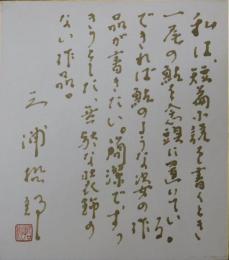 私は、短篇小説を書くとき
一尾の鮎を念頭に置いている。
できれば鮎のような姿の作
品が書きたい。簡潔ですっ
きりとした、無駄な装飾の
ない作品。
三浦哲郎